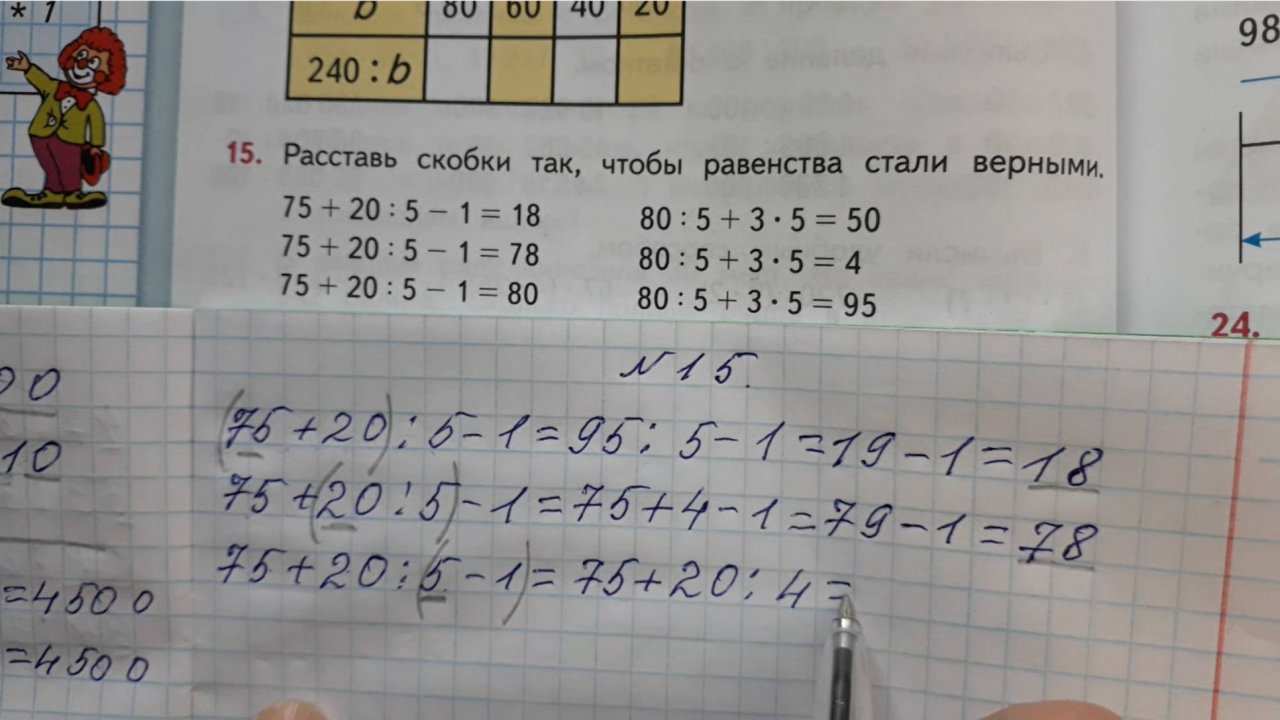 * 1
b 80 60 40 20
240 : b
98
15. Расставь скобки так, чтобы равенства стали верными.
75 + 20 : 5 − 1 = 18
75 + 20 : 5 − 1 = 78
75 + 20 : 5 − 1 = 80
80 : 5 + 3 · 5 = 50
80 : 5 + 3 · 5 = 4
80 : 5 + 3 · 5 = 95
24.
N 15.
(75 + 20) : 5 - 1 = 95 : 5 - 1 = 19 - 1 = 18
75 + (20 : 5) - 1 = 75 + 4 - 1 = 79 - 1 = 78
75 + 20 : (5 - 1) = 75 + 20 : 4 =
00
10
=4500
=4500